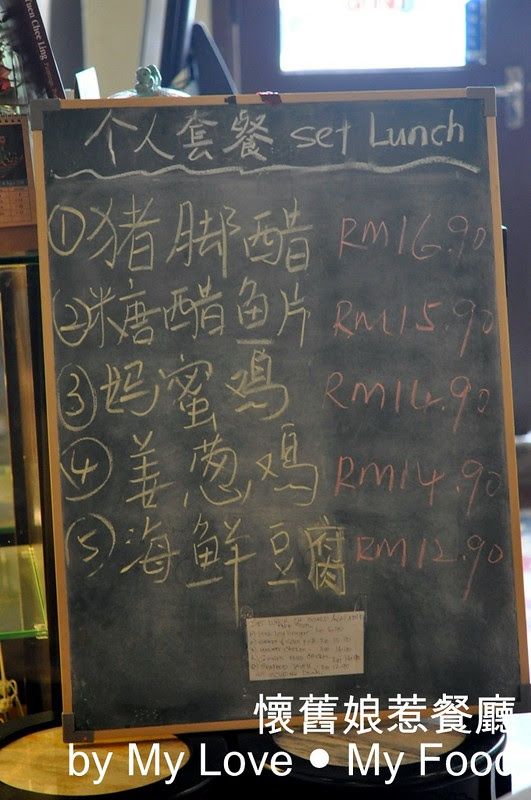 Yuen Chee Ling
个人套餐 set Lunch
① 猪脚醋 RM16.90
② 糖醋鱼片 RM15.90
③ 妈蜜鸡 RM14.90
④ 姜葱鸡 RM14.90
⑤ 海鲜豆腐 RM12.90
懷舊娘惹餐廳
by My Love ● My Food